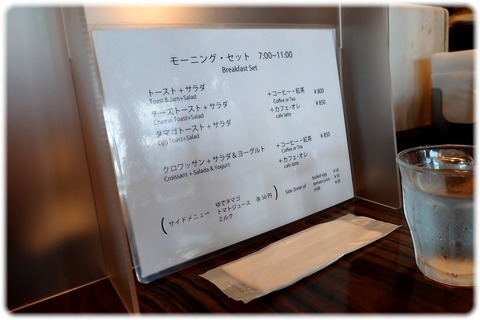 モーニング・セット 7:00~11:00
Breakfast Set
トースト + サラダ
Toast & Jam+Salad
チーズトースト + サラダ
Cheese Toast+Salad
タマゴトースト + サラダ
Egg Toast+Salad
+コーヒー・紅茶 ¥800
Coffee or Tea
+カフェ・オレ ¥850
cafe latte
クロワッサン + サラダ & ヨーグルト
Croissant + Salada & Yogurt
+コーヒー・紅茶 ¥850
Coffee or Tea
+カフェ・オレ
cafe latte
(サイドメニュー ゆでタマゴ
トマトジュース 各50円
ミルク)
Side Order of boiled egg ¥50
tomato juice ¥50
milk ¥50